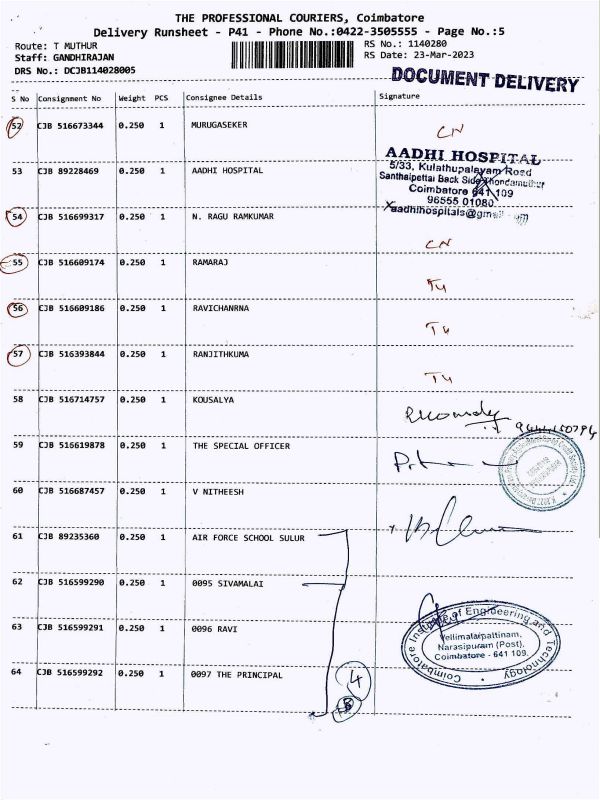 THE PROFESSIONAL COURIERS, Coimbatore
Delivery Runsheet - P41 - Phone No.:0422-3505555 - Page No.:5
Route: T MUTHUR RS No.: 1140280
Staff: GANDHIRAJAN RS Date: 23-Mar-2023
DRS No.: DCJB114028005
DOCUMENT DELIVERY
S No Consignment No Weight PCS Consignee Details Signature
52 CJB 516673344 0.250 1 MURUGASEKER
CN
53 CJB 89228469 0.250 1 AADHI HOSPITAL
AADHI HOSPITAL
5/33, Kulathupalayam Road
Santhaipettai Back Side, Thondamuthur
Coimbatore 641 109
96555 01080
aadhihospitals@gmail
54 CJB 516699317 0.250 1 N. RAGU RAMKUMAR
CN
55 CJB 516609174 0.250 1 RAMARAJ
T4
56 CJB 516609186 0.250 1 RAVICHANRNA
T4
57 CJB 516393844 0.250 1 RANJITHKUMA
T4
58 CJB 516714757 0.250 1 KOUSALYA
59 CJB 516619878 0.250 1 THE SPECIAL OFFICER
60 CJB 516687457 0.250 1 V NITHEESH
61 CJB 89235360 0.250 1 AIR FORCE SCHOOL SULUR
62 CJB 516599290 0.250 1 0095 SIVAMALAI
63 CJB 516599291 0.250 1 0096 RAVI
Coimbatore Institute of Engineering and Technology
Vellimalaipattinam,
Narasipuram (Post),
Coimbatore - 641 109.
64 CJB 516599292 0.250 1 0097 THE PRINCIPAL
4